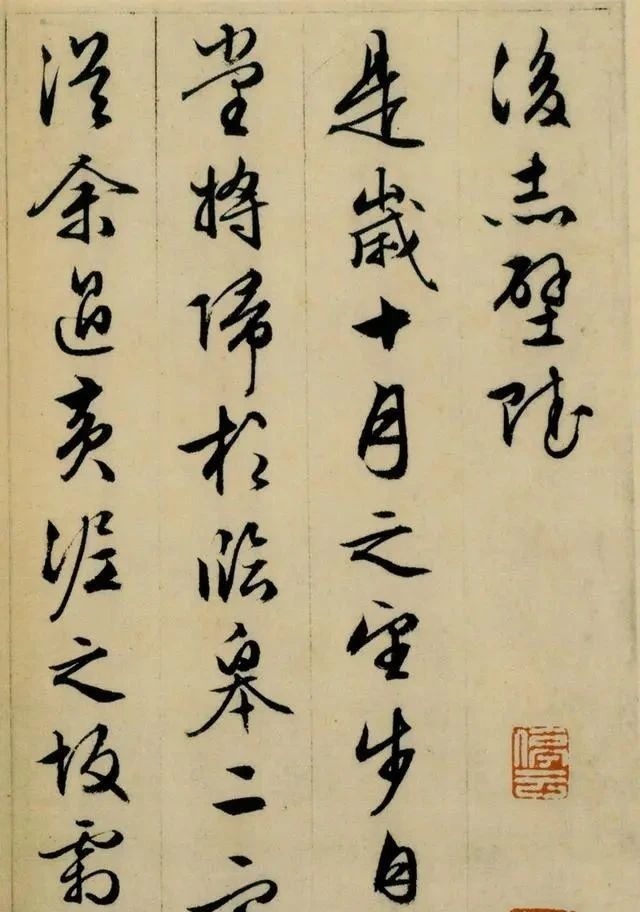 後赤壁賦
是歲十月之望步自
堂將歸於臨皋二
從余過黃泥之坂霜
停雲